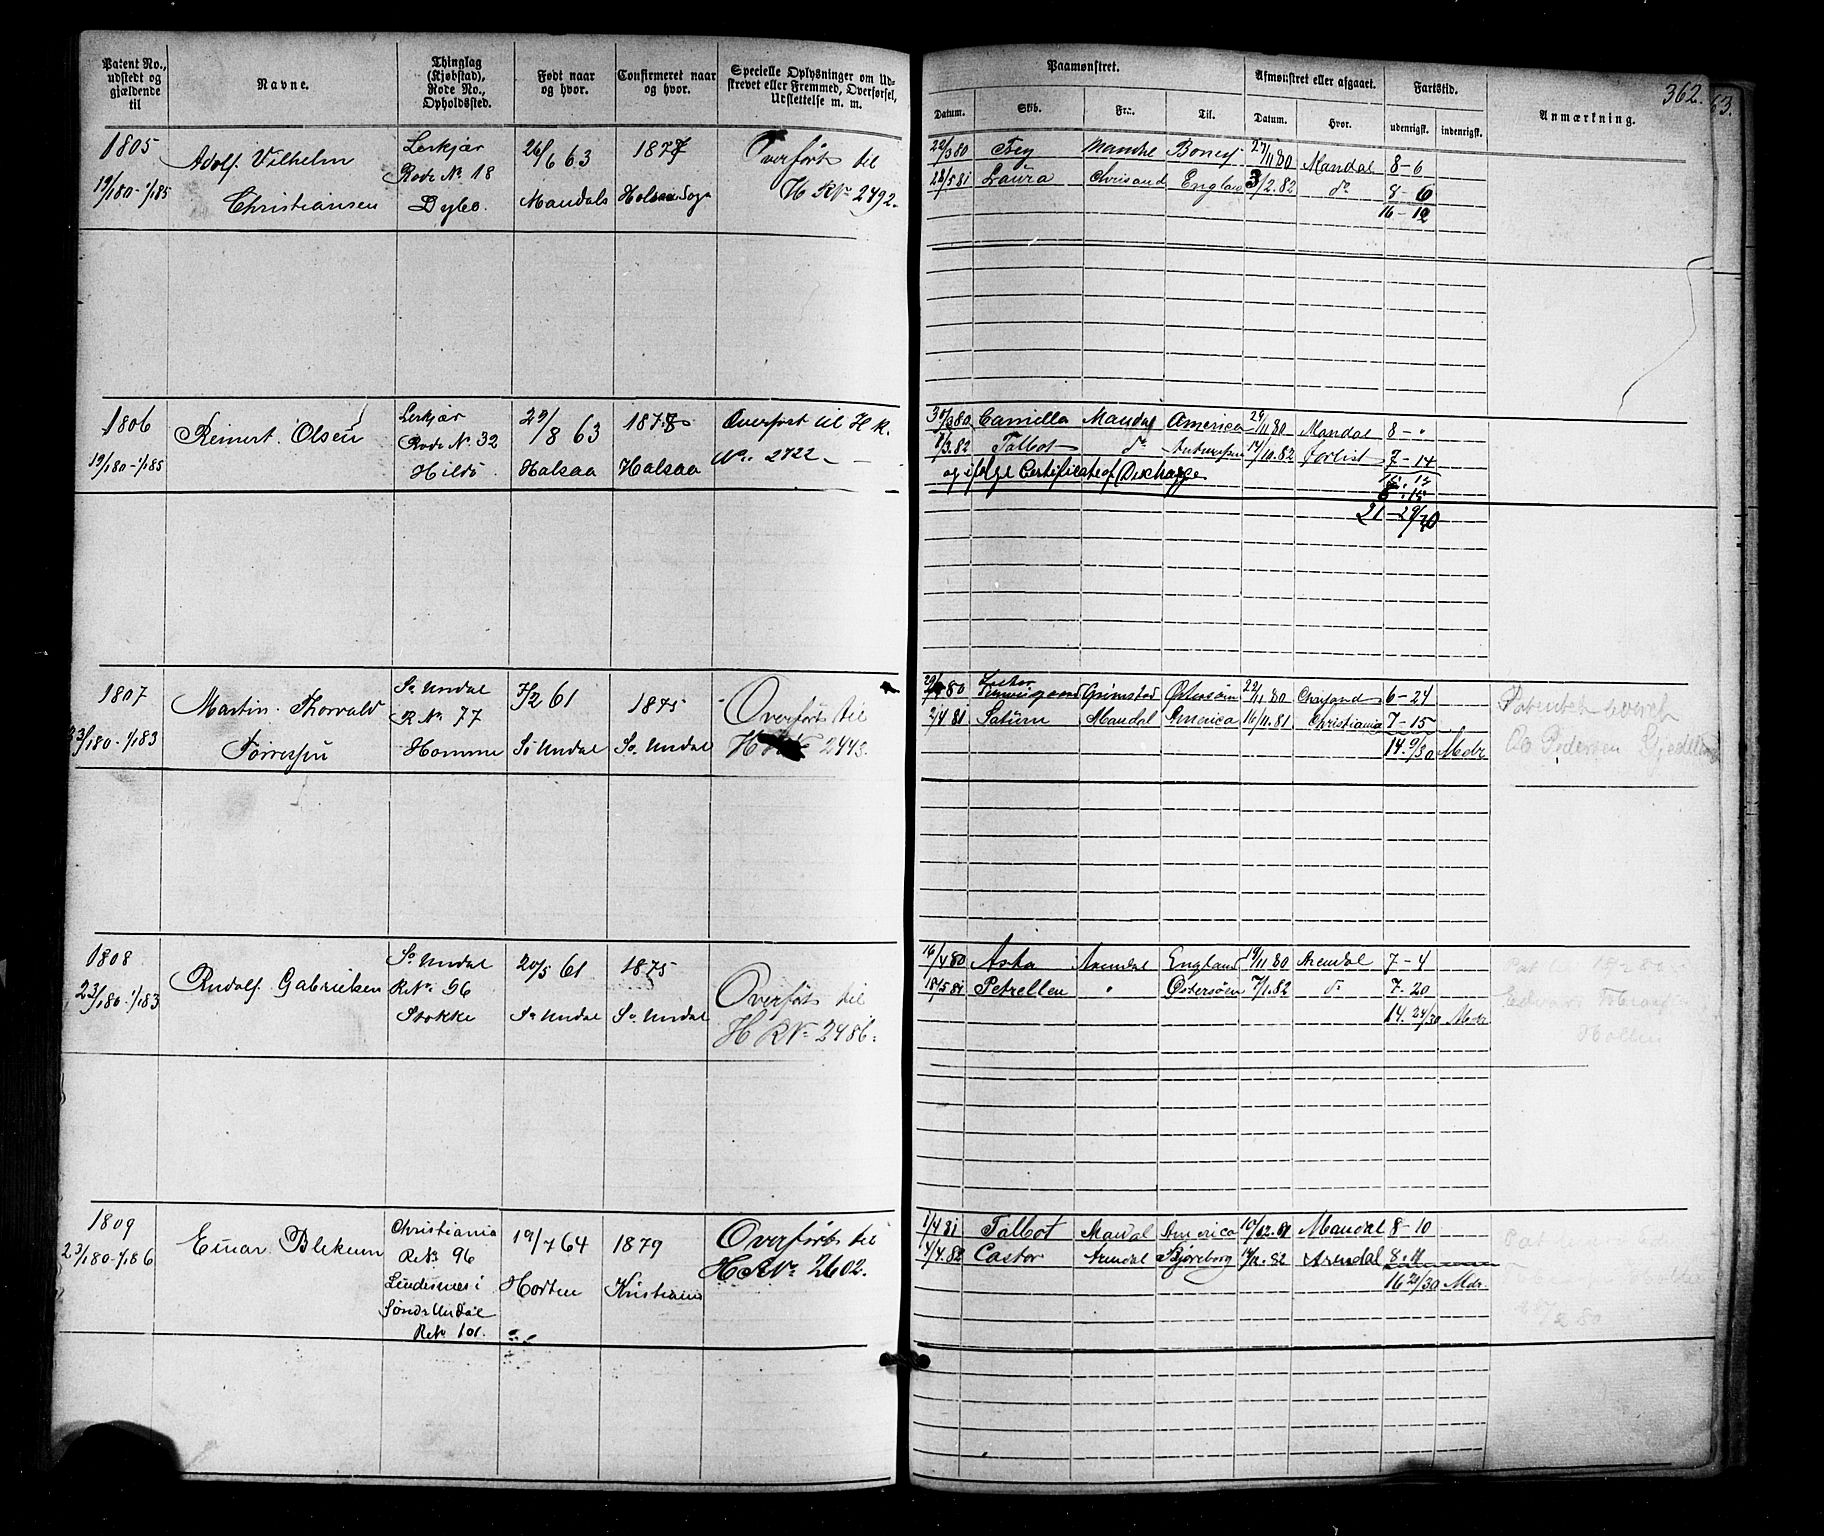 Patent No., udstedt og gjældende til
Navne.
Thinglag (Kjøbstad), Rode No., Opholdssted.
Født naar og hvor.
Confirmeret naar og hvor.
Specielle Oplysninger om Udskrevet eller Fremmed, Overførsel, Udslettelse m. m.
Paamønstret.
Afmønstret eller afgaaet.
Fartstid.
Anmærkning.
362.
63.
Datum.
Skib.
Fra.
Til.
Datum.
Hvor.
udenrigsk.
indenrigsk.
1805
19/1 80 - 1/1 85
Adolf Vilhelm
Christiansen
Lerkjær
Rode No 18
Dybo.
26/6 63
Mandals
1877
Halsaa Sogn
Overført til
H R No 2492.
22/3 80 Mandal 27/11 80 Mandal 8-6
28/5 81 Laura Chrisand England 3/2.82 do 8-6
16-12
1806
19/1 80 - 1/1 85
Reinert Olsen
Lerkjær
Rode No 32
Hille
29/8 63
Halsaa
1878
Halsaa
Overført til H R.
No. 2722
30/3 80 Camilla Mandal America 29/11 80 Mandal 8-"
8/3.82 Talbot do 14/10.82 Forlist 7-14
og ifølge Certificate of Discharge
15.15
21-29/30
1807
23/1 80 - 1/1 83
Martin Thorvald
Torresen
So Undal
R No 77
Homme
7/2 61
So Undal
1875
So. Undal
Overført til
H 2443.
80 Grimstad Østersøen 22/11 80 6-24
2/4 81 Saturn Mandal America 16/11.81 Christiania 7-15
14. 9/30 Mdr
Pedersen
1808
23/1 80 - 1/1 83
Rudolf Gabrielsen
So Undal
R No 96
Stokke
20/5 61
So Undal
1875
So. Undal
Overført til
H R No 2486.
16/4 80 Asta Arendal England 19/11 80 Arendal 7-4
18/5 81 Petrellen " Østersøen 7/1.82 do 7-20
14. 24/30 Mdr
1809
23/1 80 - 1/1 86
Einar Blekum
Christiania
R No 96
Lindesnes i
Sønd. Undal
R No 101.
19/7 64
Horten
1879
Kristiania
Overført til
H R No 2602.
1/4 81 Talbot Mandal America 10/12.81 Mandal 8-10
4/4.82 Castor Arendal Bjørneborg 82 Arendal 8.11
16 21/30 Mdr.